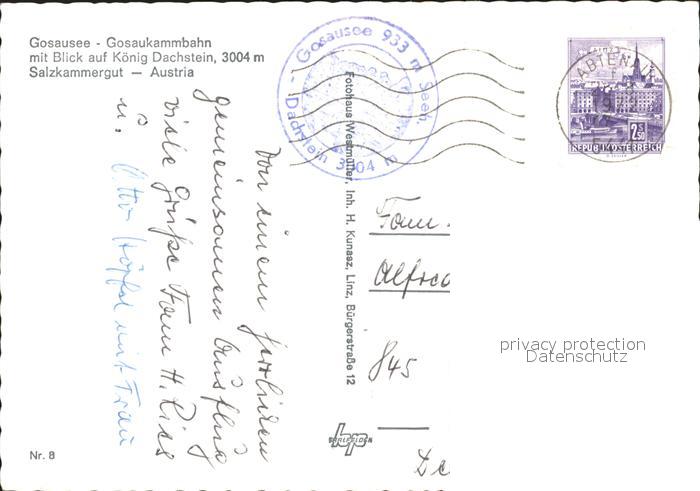 Gosausee - Gosaukammbahn
mit Blick auf König Dachstein, 3004 m
Salzkammergut — Austria
Gosausee 933 m Seeh.
Dachstein 3004 m
ABTENAU
2.50
REPUBLIK ÖSTERREICH
Fotohaus Westmüller, Inh. H. Kunasz, Linz, Bürgerstraße 12
Von einem herrlichen
gemeinsamen Ausflug
viele Grüße Fam. H.
u. mit Frau
Fam.
Alfred
845
privacy protection
Datenschutz
Nr. 8